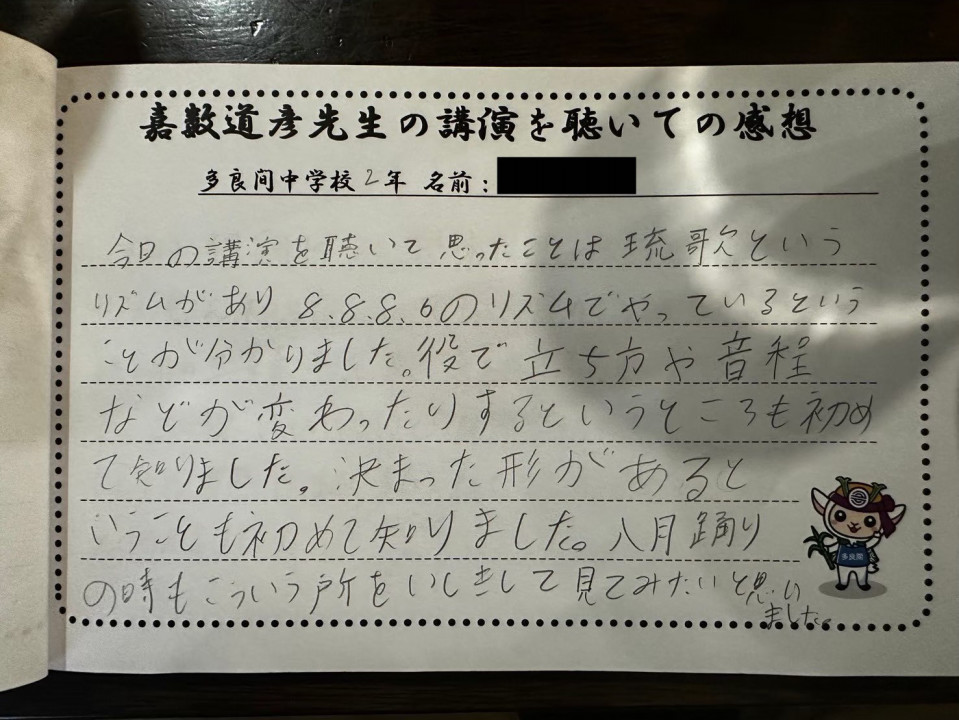 嘉数道彦先生の講演を聴いての感想
多良間中学校2年 名前：
今日の講演を聴いて思ったことは琉歌という
リズムがあり8.8.8.6のリズムでやっているという
ことが分かりました。役で立ち方や音程
などが変わったりするというところも初め
て知りました。決まった形があると
いうことも初めて知りました。八月踊り
の時もこういう所をいしきして見てみたいと思い
ました。
多良間